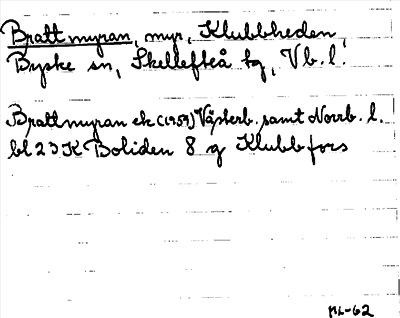 Brattmyran, myr, Klubbheden,
Byske sn, Skellefteå tg, Vb. l.
Brattmyran ek (1959) Västerb. samt Norrb. l.
bl 23K Boliden 8 g Klubbfors
NL-62